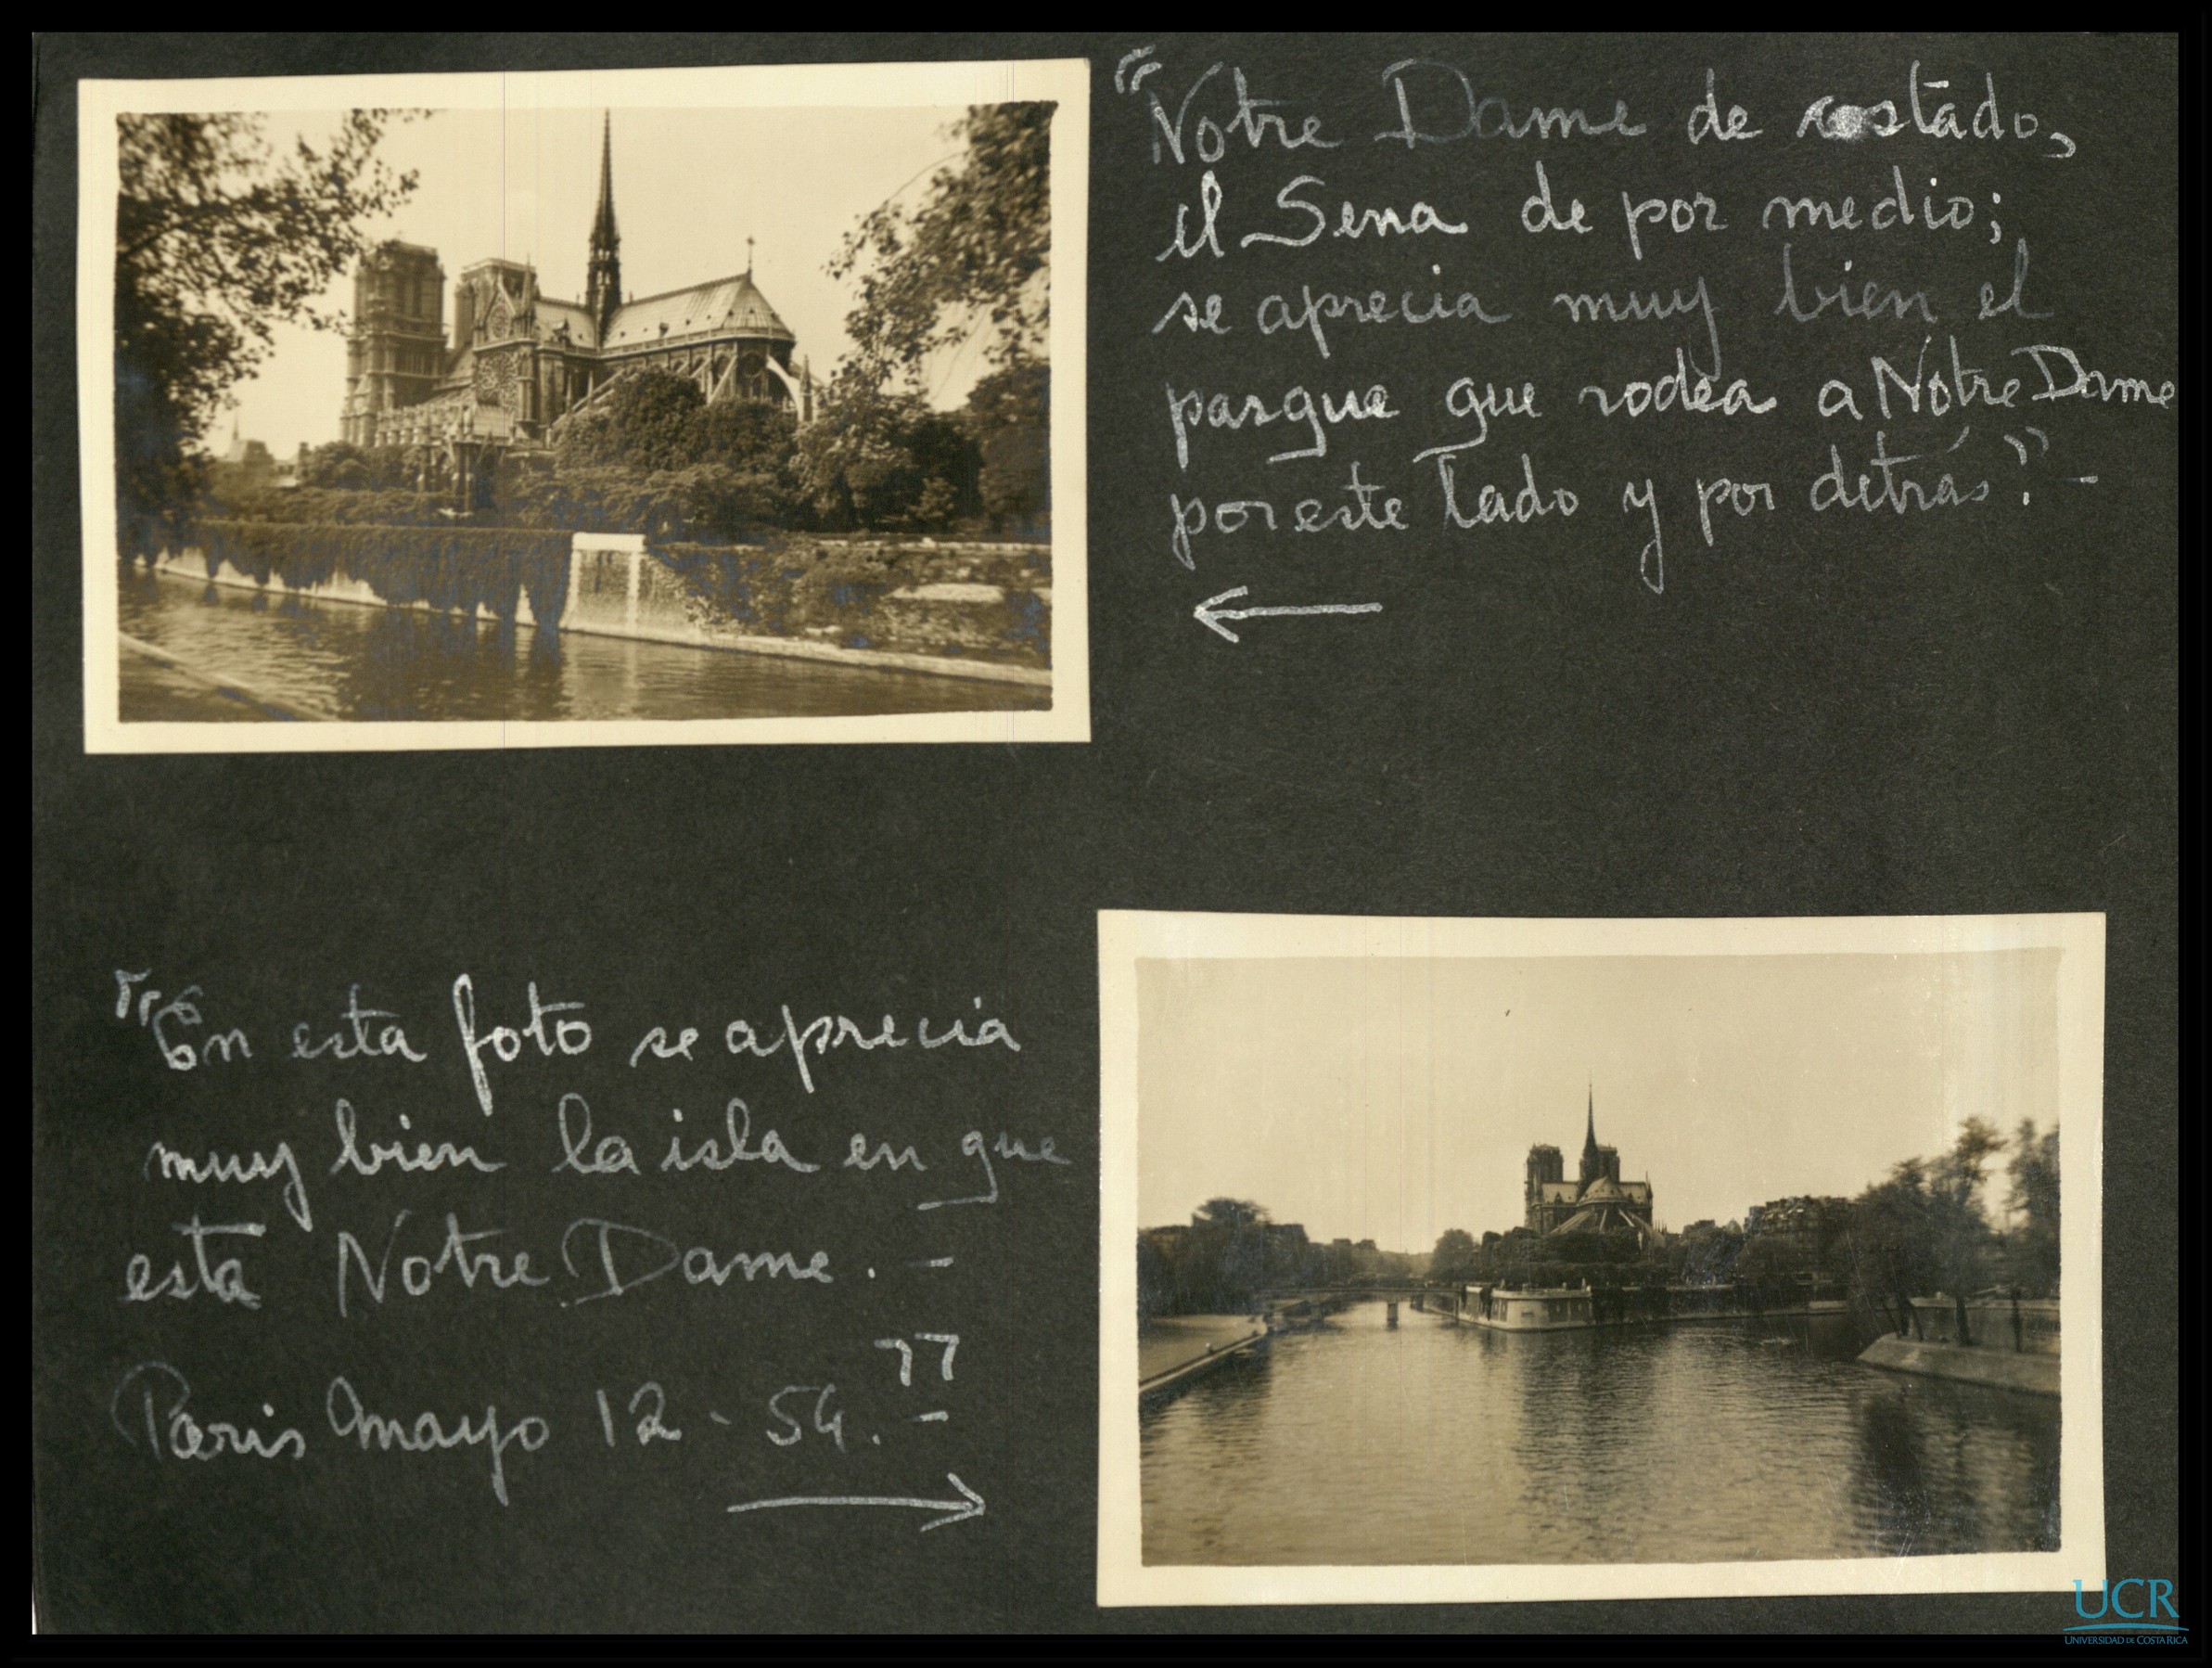 "Notre Dame de costado,
el Sena de por medio;
se aprecia muy bien el
parque que rodea a Notre Dame
por este lado y por detrás". -
"En esta foto se aprecia
muy bien la isla en que
esta Notre Dame. -
Paris Mayo 12 - 54. - "
UCR
UNIVERSIDAD DE COSTA RICA